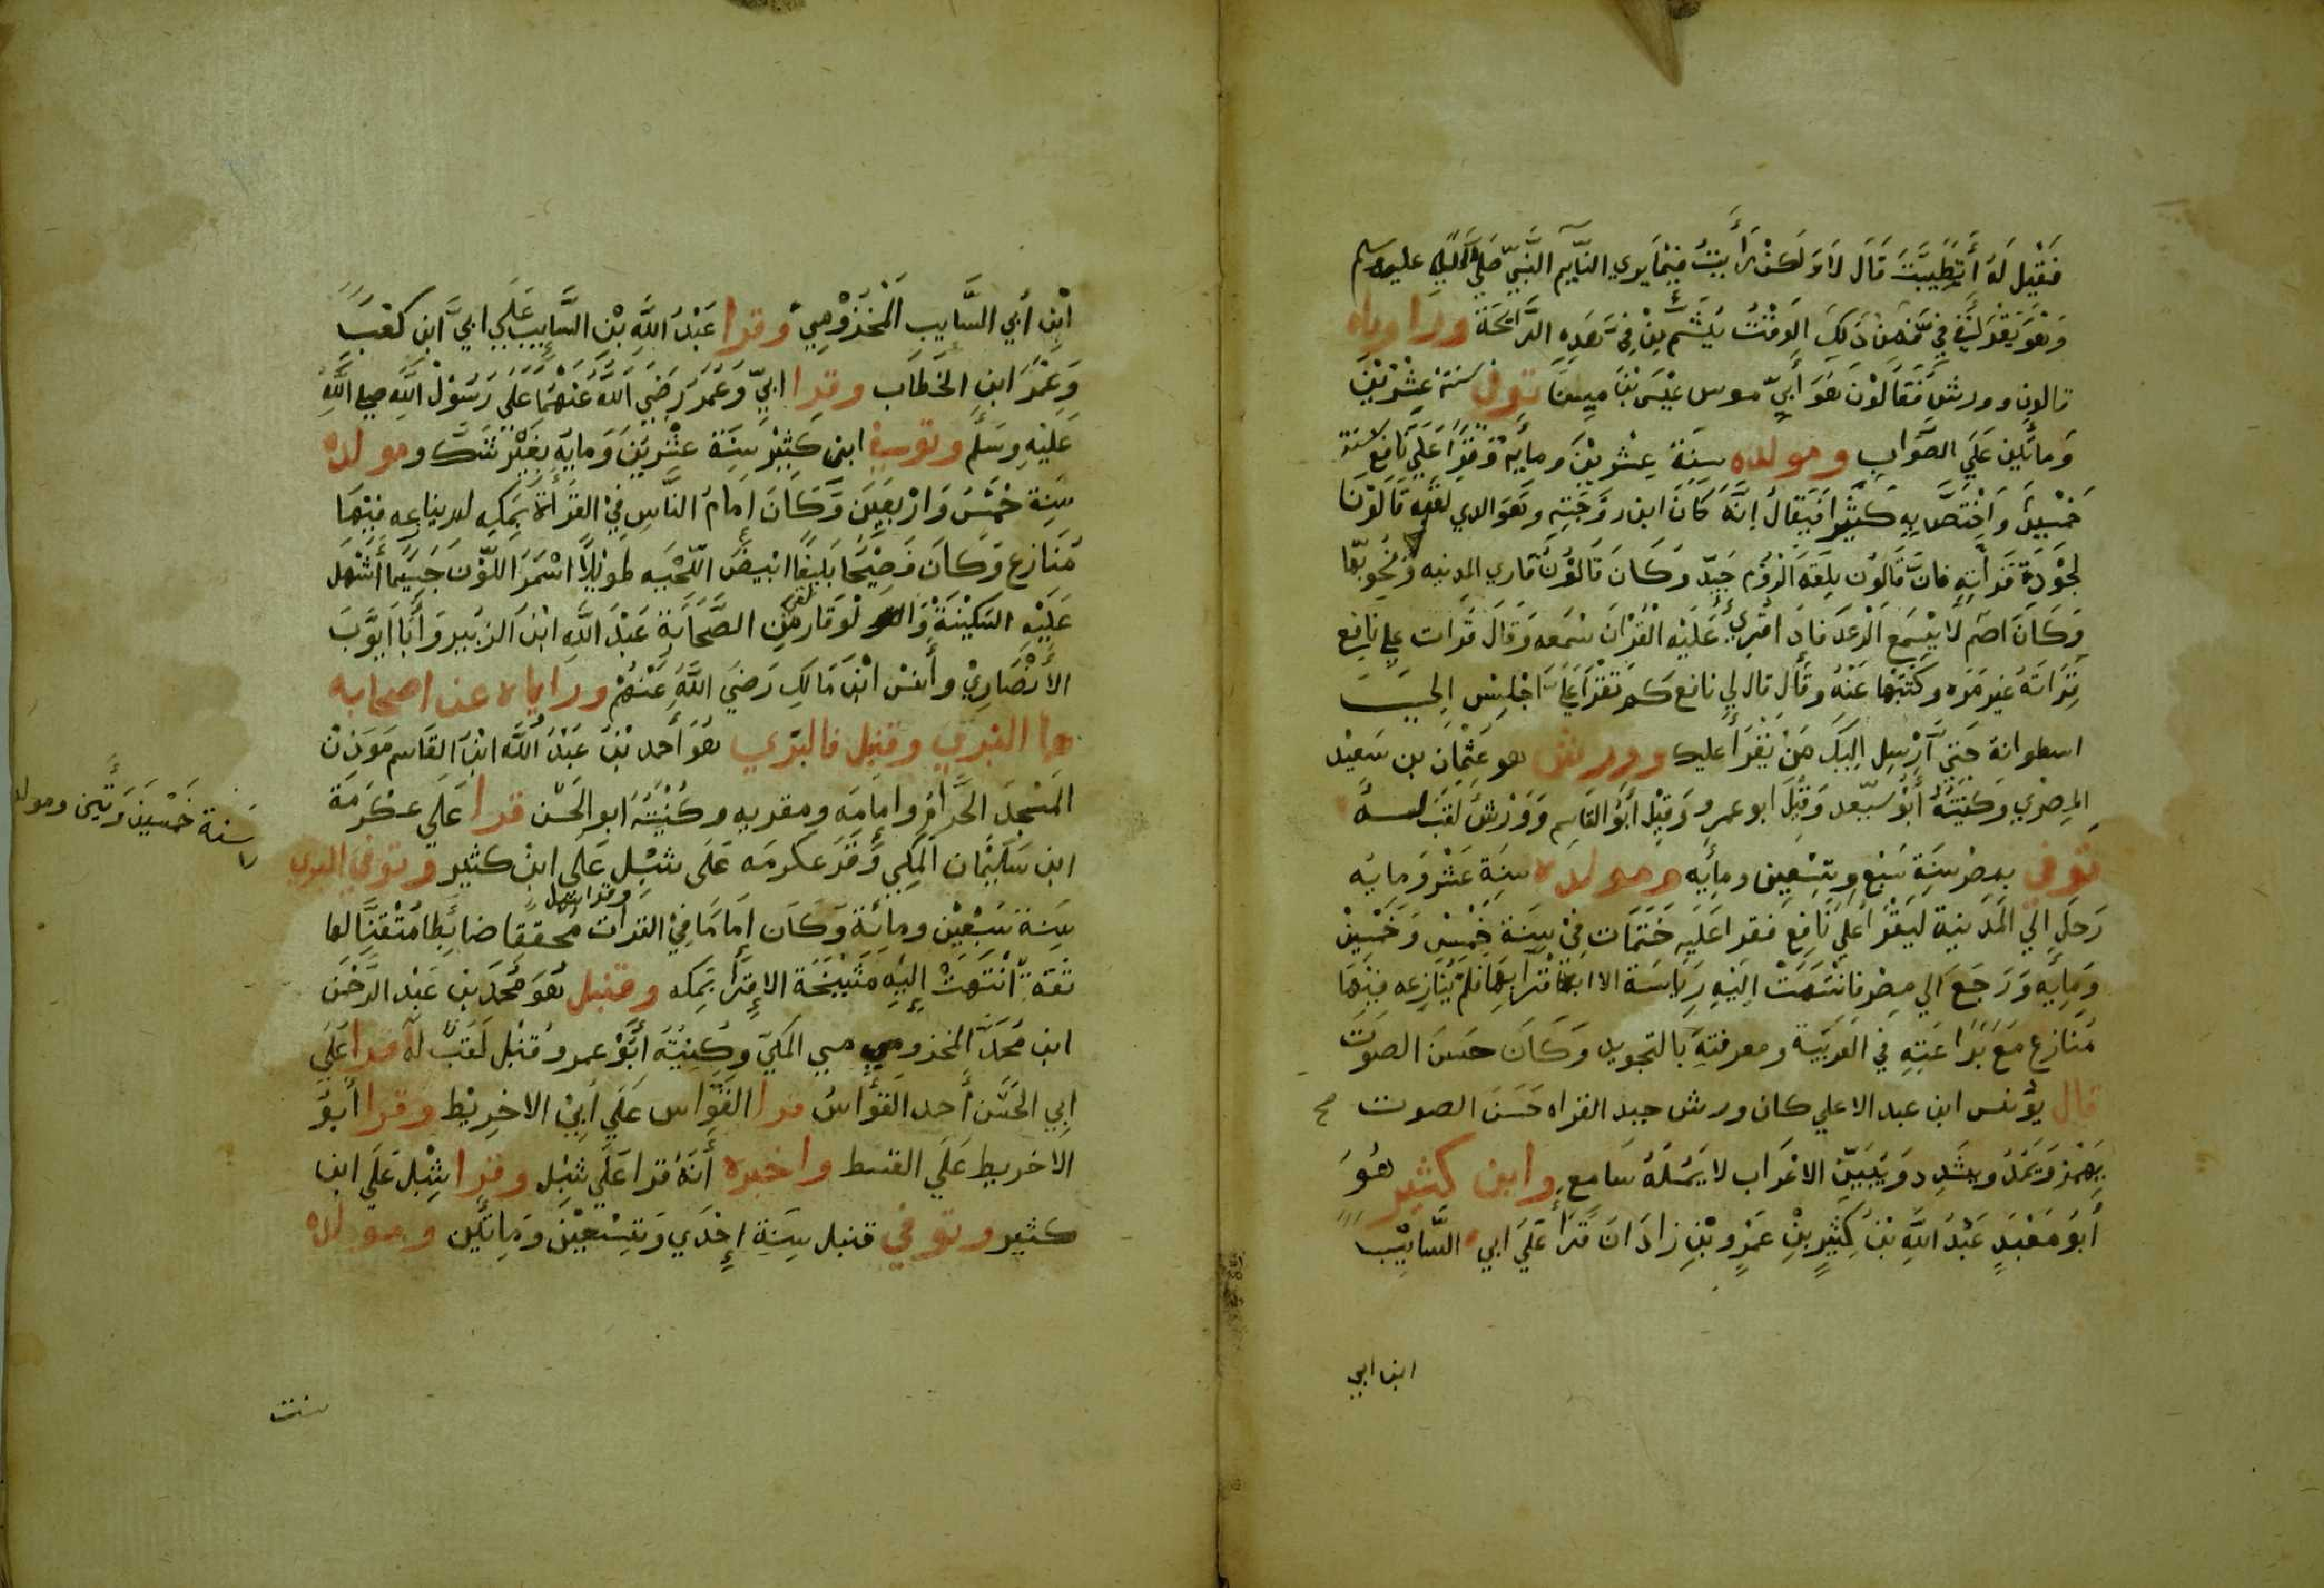 فَقِيْلَ لَهُ أَتَطَيَّبْتَ قَالَ لَا وَلَكن رَأَيْتُ فيْمَا يري النَّايِم النَّبِيّ صَلَّي اللَّهُ عليه وسلم
وَهُوَ يَقْرَأ فِي فَمِّي فمن ذَلِكَ الوَقْتُ يُشَمُّ مِنْ فِيَّ هَذِهِ الرَّائِحَةَ وراوياه
قالون وورش فَقَالُوْنَ هُوَ أَبِيّ موسى عِيْسَي بْنُ مِينَا توفي سَنَةْ عِشْرِيْنَ
وَمائتين عَلَي الصَّوَابِ ومولده سِنَةَ عِشْرِيْنَ ومأيه وَقَرَأَ عَلَي نَافِع سنة
خَمْسِيْنَ وَاخْتَصَّ بِهِ كَثِيْرًا فيُقَالُ إنَّهُ كَانَ ابن زَوْجَتِهِ وهو الذي لقّبه قَالُوْنَ
لجَوْدَةِ قرأتِهِ فانَّ قَالُوْن بِلغَة الرُوْمِ جَيّد وَكَانَ قَالُوْنُ قَاري المدينه ونحويّها
وَكَانَ اصَم لَا يَسْمَع الرعْدَ فاذَ اقري عَلَيْهِ الْقُرْان سَمعه وَقَال قرات علي نافع
قِرَاتَهُ غير مَره وكَتَبْتها عَنْهُ وَقَال قال لي نافع كَم تقْرَأ عَلَيَّ اجْلِسْ الي
اسطوانة حَتِّي أُرْسِلُ اليكَ مَنْ يَقْرَأ عليك وورش هو عُثْمَانَ بن سَعِيْد
المِصْرِي وَكنْيَتُهُ أَبُوْ سعيد وَقِيْلَ ابو عمرو وَقِيْل أَبُوْ القَاسِم وَوَرْشُ لَقَبٌ لـه
تُوفي بمصر سَنَةِ سَبْعٍ وتِسْعِين ومايه ومولده سِنَةَ عَشْر ومايه
رَحَلَ الي المَدِينة لَيَقْرَأَ عَلي نَافِعْ فقرا عَلَيه خَتَمَات فِيْ سِنَة خمْسٍ وَخَمْسِيْن
وَمايه وَرَجَعَ الي مصر فانْتَهَتْ الَيْهِ رِياسَة الاقرا بها فلم يُنَازِعه فيْهَا
مُنَازع مَعَ بَرَاعَتِهِ في العَرَبيّة ومعرفتهِ بالتجويد وَكَانَ حَسَن الصوت
قال يُونس ابن عبد الاعلي كان ورش جيد القراه حَسَنَ الصوت
يَهْمِزُ وَيَمُدّ ويُشَدِد وَيُبَيّن الاعْرَاب لا يَمُلّهُ سَامع وابن كثير هُوَ
أَبُو مَعْبَدٍ عَبْدُ اللَّهِ بْنُ كَثِيْرٍ بنْ عَمْرٍو بْنِ زَاذَانَ قَرَأَ عَلَي ابي السَّايِب
ابن ابي
ابْنِ أَبِي السَّايِبِ الْمَخْزُوْمِيّ وقرا عَبْدُ اللَّهِ بْنِ السَّايِب عَلَي ابيّ ابن كَعْبٍ
وَعُمَرَ ابنِ الخَطَّاب وقرا ابيّ وَعُمَرَ رَضِيَ اللَّهُ عَنْهُمَا عَلَي رَسُوْل اللَّهِ صلي اللَّهُ
عَلَيْهِ وسَلَّم وتوفي ابن كَثِيْر سنَةَ عِشْرِيْنَ وَمايَه بِغَيْرِ شَكّ ومولده
سَنِة خَمْسْ وَارْبَعِيْنَ وَّكَانَ امامُ النَّاسِ فِيْ القِرَأَة بمَكه لم ينازعه فيْهَا
مُنَازع وَكَانَ فَصِيْحًا بَلِيغًا ابْيضُ اللّحْيه طَويْلًا اسْمَرَ اللّوْنَ جَسِيْمًا أَشْهَل
عَلَيْهِ السّكِيْنَةْ وَالوَقَار لقي مِن الصَّحَابَة عَبْدَ اللَّهِ ابْنَ الزبَير وَأَبَا أيُّوْبَ
الأَنْصَارِيْ وأَنسْ ابْن مَالِك رَضِيَ اللَّهُ عَنْهُمْ ورواياه عن اصحابه
هما البزي وقنبل فالبزي هوَ أَحمد بْنُ عَبْدُ اللَّهِ ابْن القَاسِم مَوَذِنْ
المسْجِد الحَرَام وامَامَه ومقريه وكُنْيَتُهُ ابو الحَسن قرا عَلَي عِكْرَمَة
ابن سُلَيْمَان المَكِي وقرَ عكرمَه عَلَى شبْل عَلَى ابن كثير وتوفي البزي
سَنة خَمْسِيْنَ وَمَّئَتين ومولده
وقرا شبل
سِنة سَبْعِيْن ومائة وَكَان إِمَامًا فِيْ القرأت محققا ضابِطا مُتْقِنًا لها
ثقةّ انْتَهَتْ إِلَيْهِ مَشْيَخَة الاقرأ بمَكه وقنبل هُوَ مُحَمّد بن عَبْد الرَّحْمن
ابن مُحمَّد المخزومي المَكيّ وكُنِيْتُه أَبُوْ عمر وقنْبُل لَقَبٌ له قرا عَلَيَ
ابي الحَسَن أحمد القَوَّاسُ قرا القَوّاس عَلَي أبِيْ الاخْرِيْط وقرا أَبُوْ
الاخريط عَلَي القسط واخبره أَنَّهُ قرا عَلَي شبْل وقرا شِبْل عَلَي ابن
كثير وتوفي قنبل سِنَة إحْدَي وَتِسْعِيْن وَمِائتَين ومولده
سنت